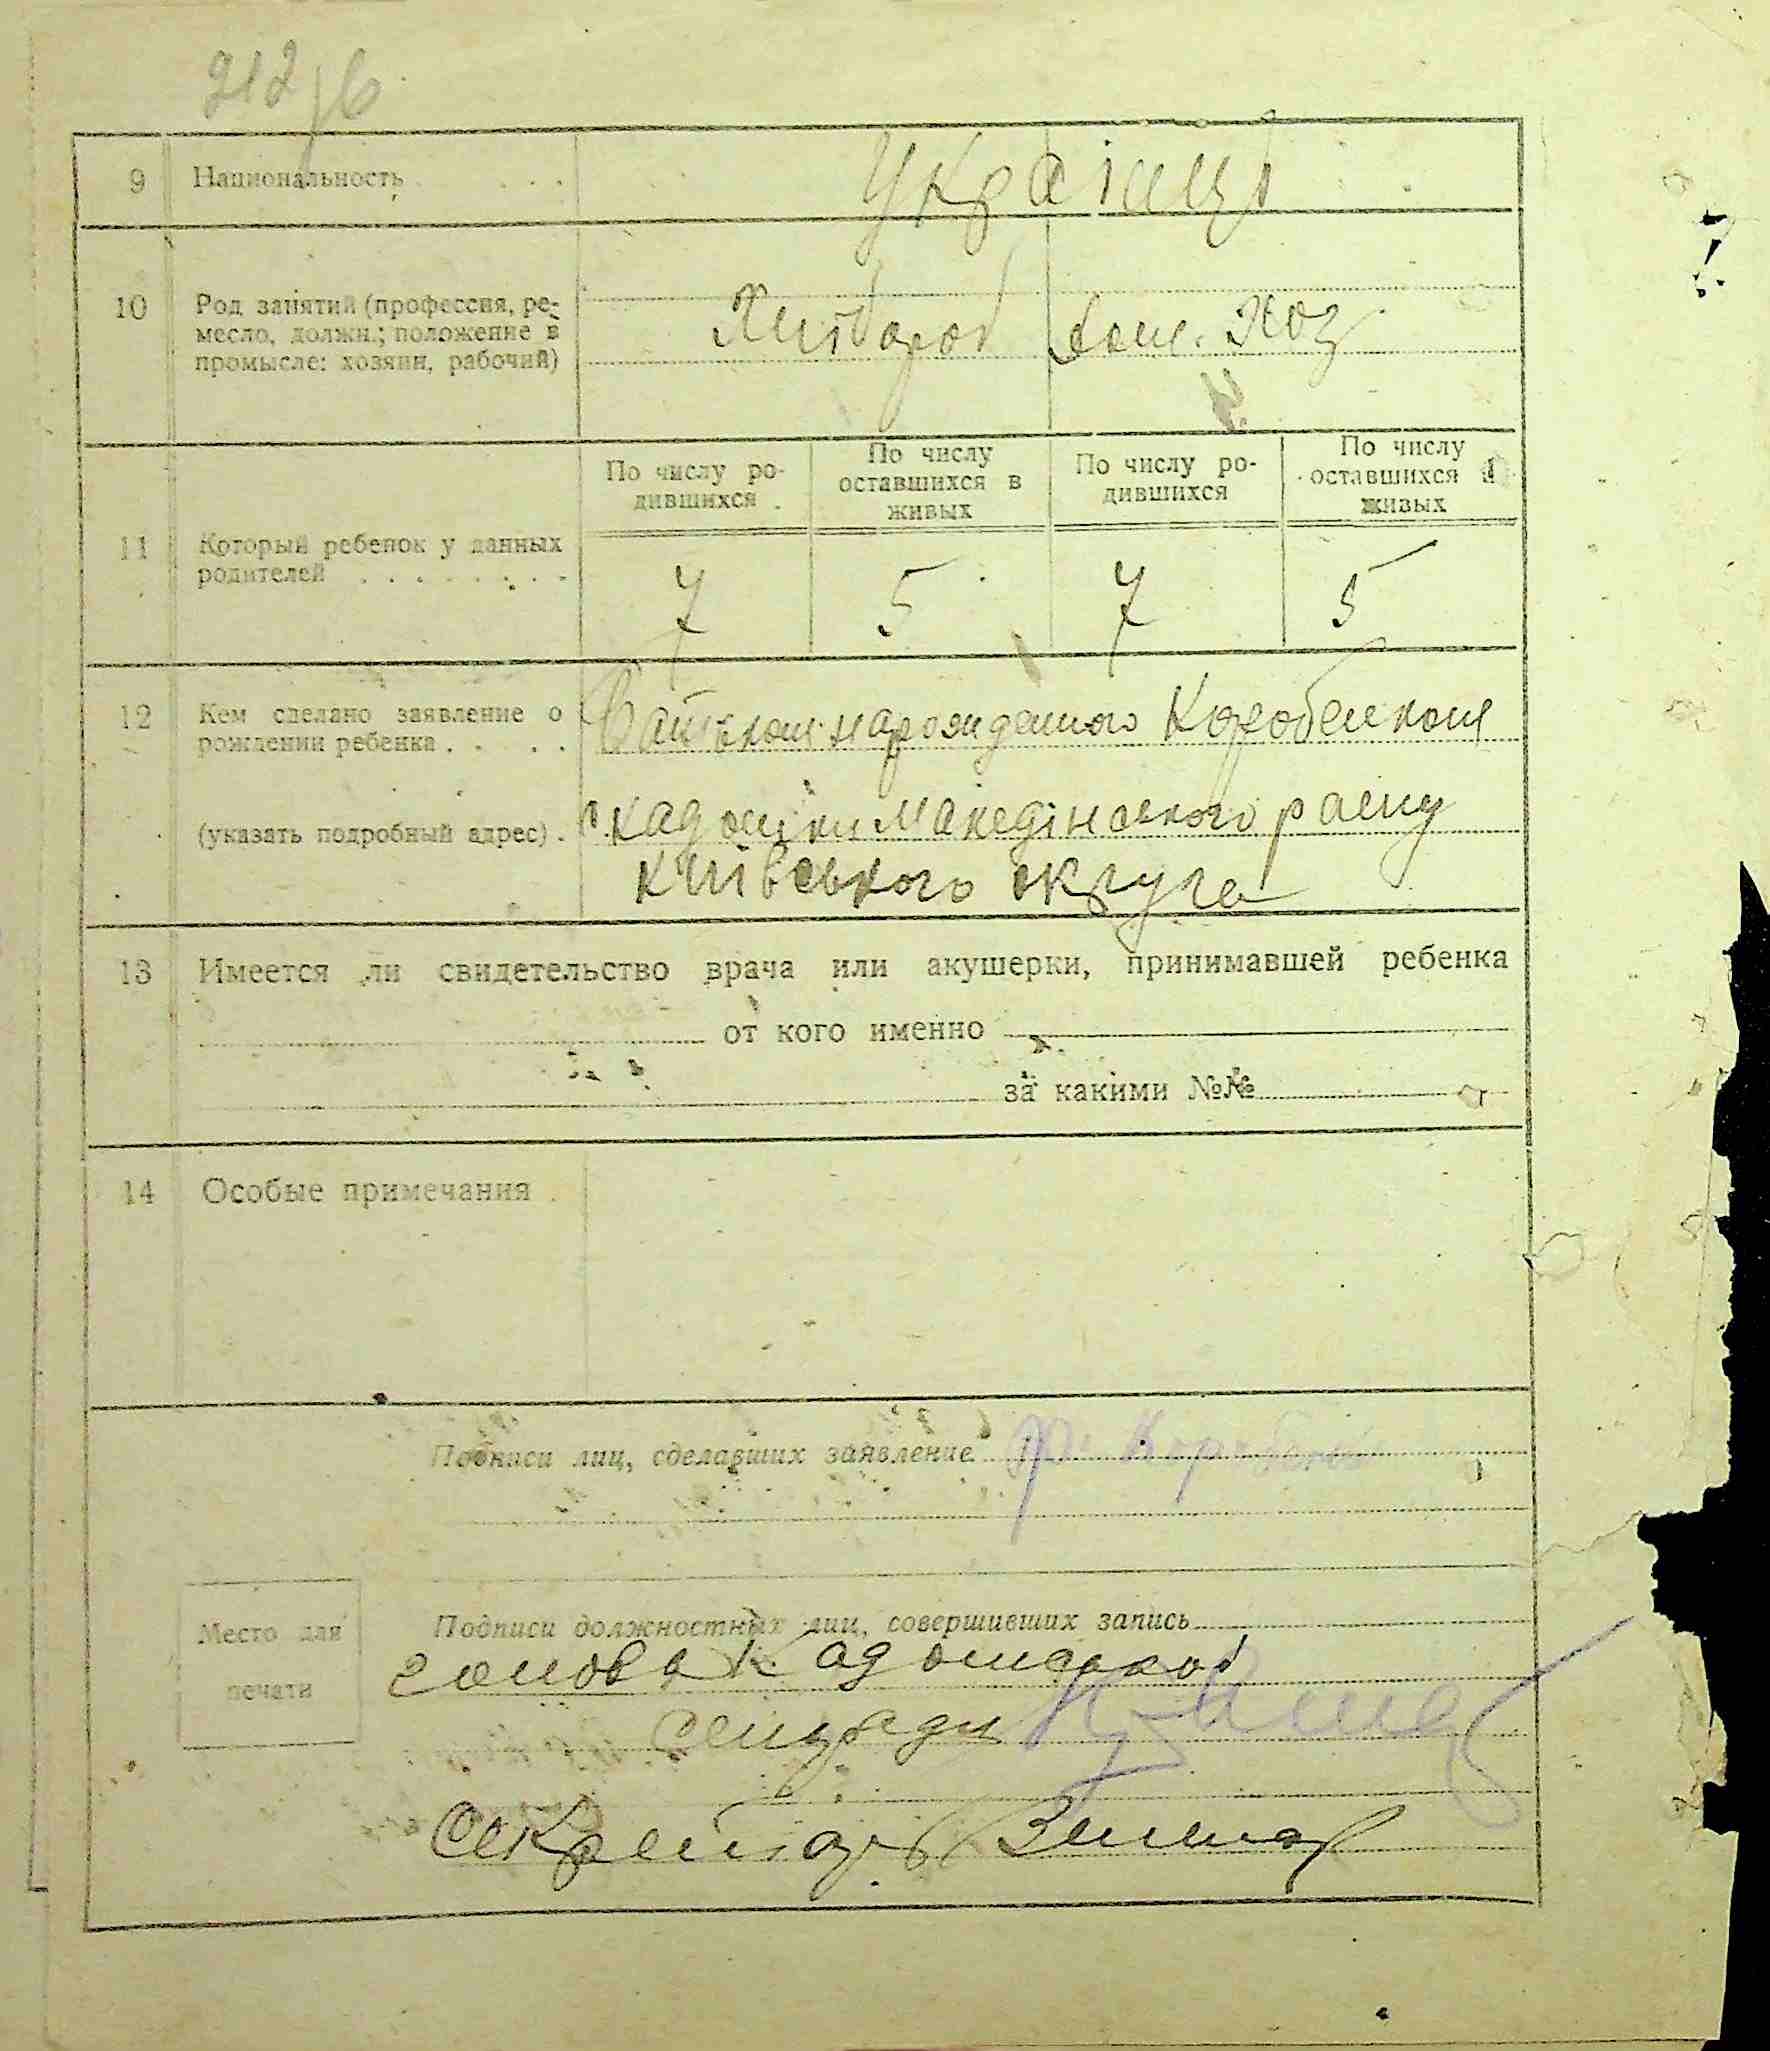 9 Национальность . . . .
Українці
10 Род занятий (профессия, ре-
месло, должн.; положение в
промысле: хозяин, рабочий)
Хлібороб дом. Хоз
11 Который ребенок у данных
родителей . . . . . . . .
По числу ро-
дившихся
По числу
оставшихся в
живых
По числу ро-
дившихся
По числу
оставшихся в
живых
7 5 7 5
12 Кем сделано заявление о
рождении ребенка . . . .
Батьком народженого Коробенком
(указать подробный адрес) .
с. Кадомки Македінського раену
Київського округа
13 Имеется ли свидетельство врача или акушерки, принимавшей ребенка
от кого именно
за какими №№
14 Особые примечания .
Подписи лиц, сделавших заявление
Место для
печати
Подписи должностных лиц, совершивших запись
голова Кадомської
сельради
Секретарь